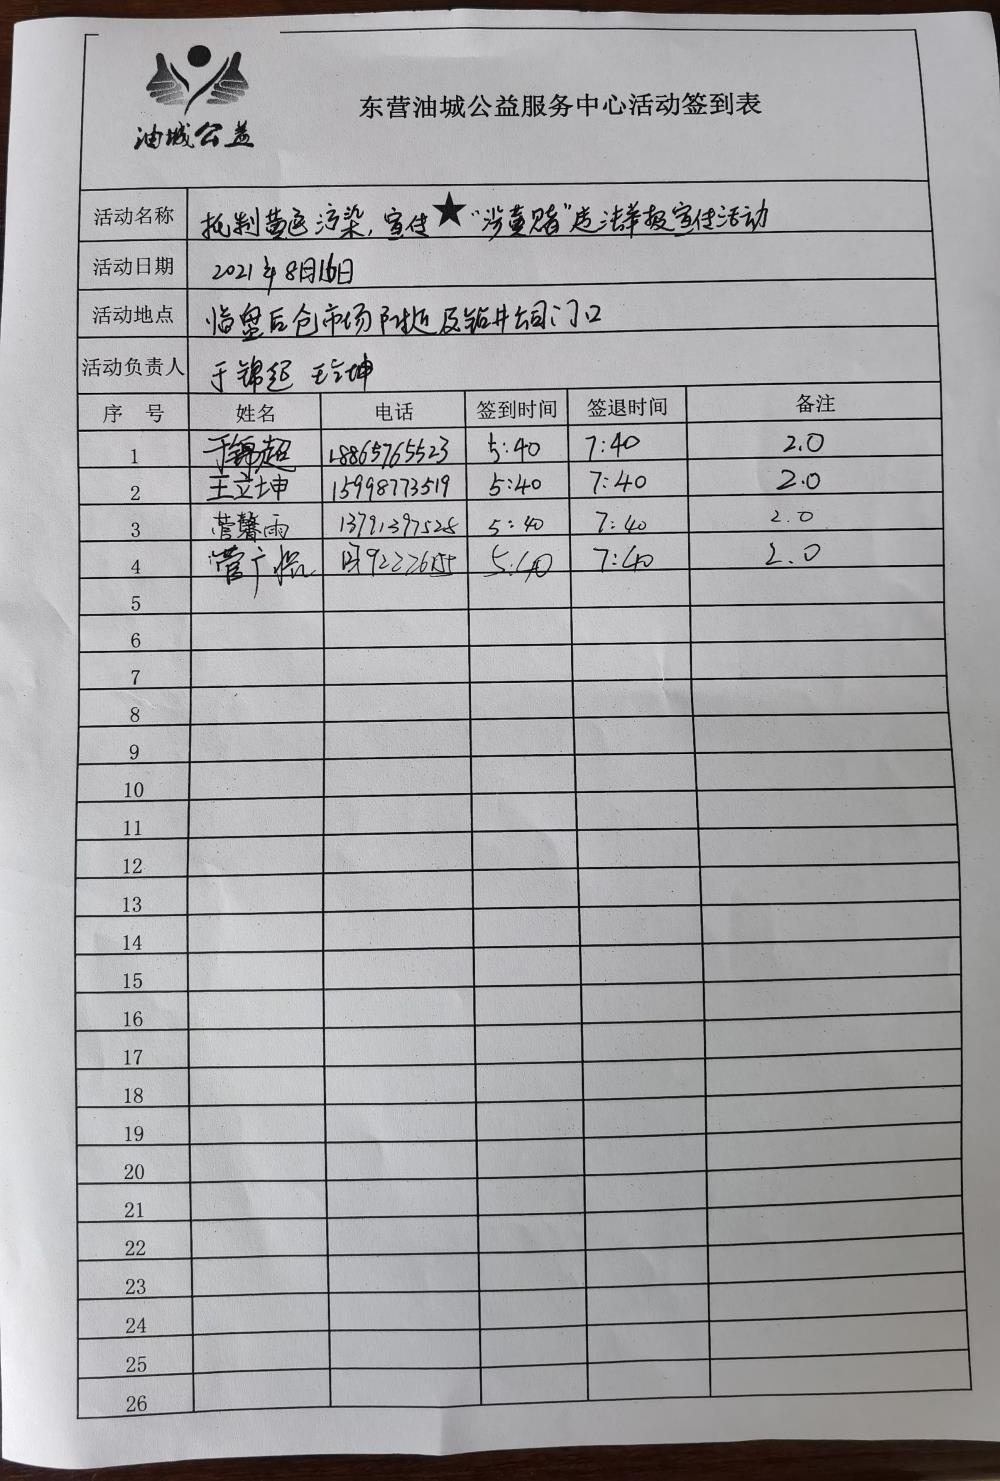 油城公益
东营油城公益服务中心活动签到表
活动名称 抵制黄色污染,宣传★“涉黄赌”违法举报宣传活动
活动日期 2021年8月16日
活动地点 临盘后仓市场附近及钻井公司门口
活动负责人 于锦超 王立坤
序 号 姓名 电话 签到时间 签退时间 备注
1 于锦超 18865765523 5:40 7:40 2.0
2 王立坤 15998773519 5:40 7:40 2.0
3 菅馨雨 13791397528 5:40 7:40 2.0
4 菅广 5:40 7:40 2.0
5
6
7
8
9
10
11
12
13
14
15
16
17
18
19
20
21
22
23
24
25
26